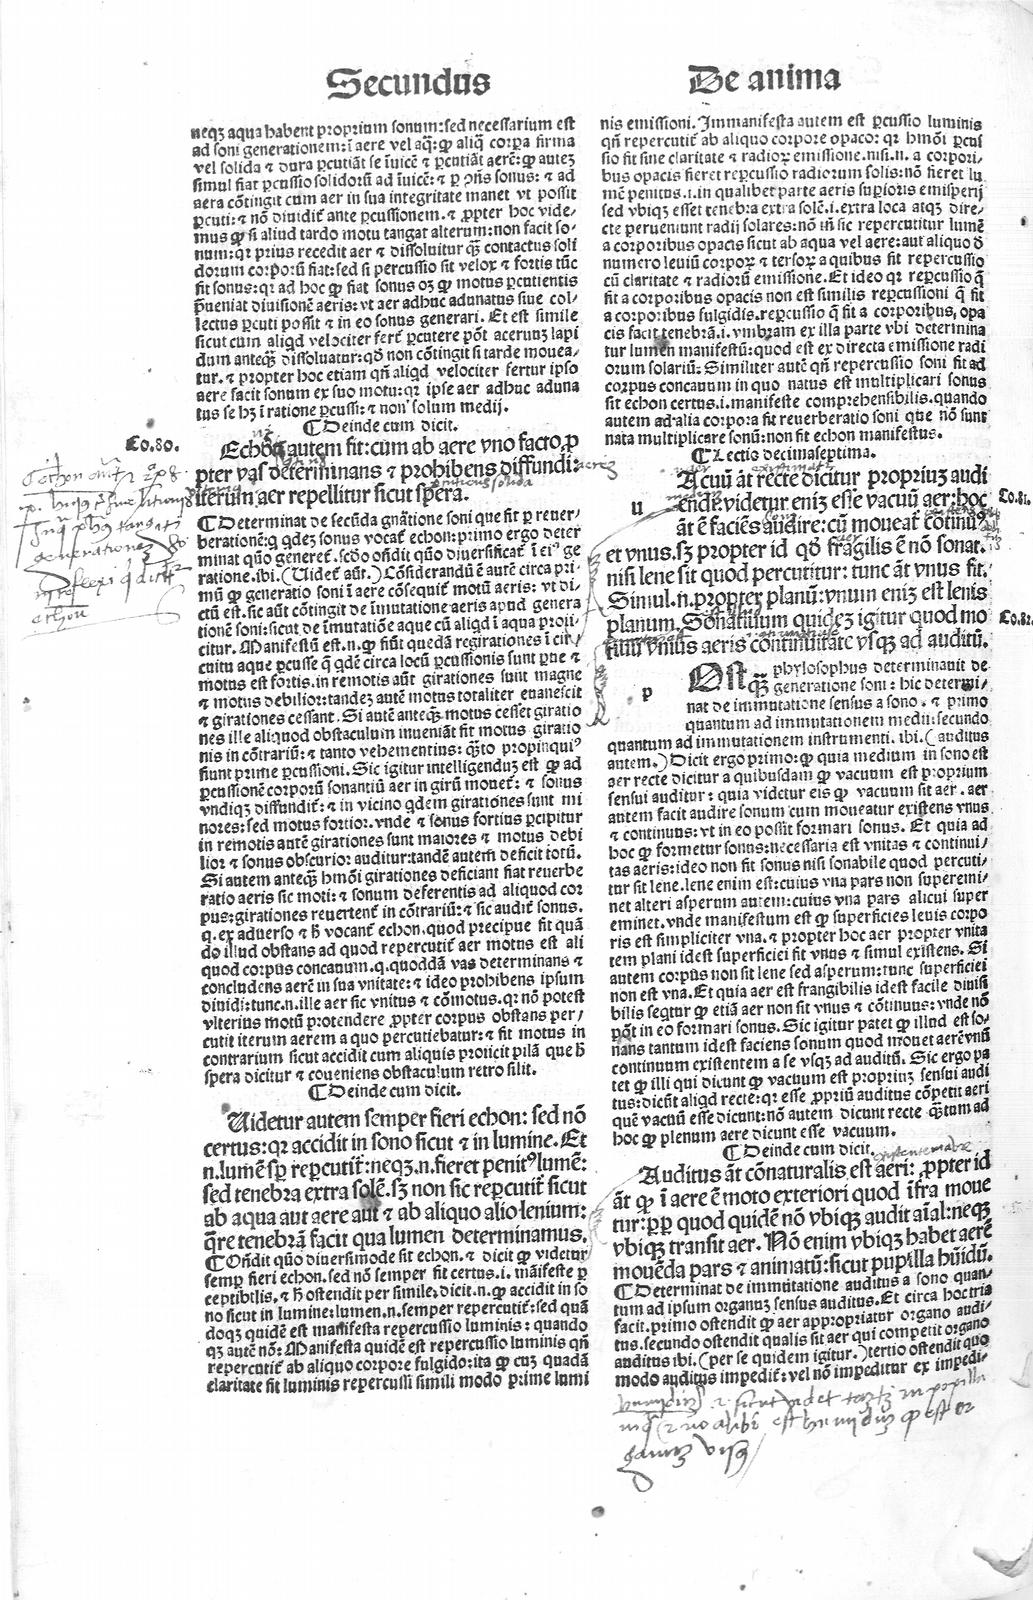 Secundus
De anima
neqȝ aqua habent proprium sonum: sed necessarium est
ad soni generationem: ī aere vel aq̄: ꝙ aliq̄ corpa firma
vel solida ⁊ dura ꝑcutiāt se īuicē ⁊ ꝑcutiāt aerē: ꝙ autēȝ
simul fiat ꝑcussio solidorū ad īuicē: ⁊ ꝑ ꝯñs sonus: ⁊ ad
aera cōtingit cum aer in sua integritate manet vt possit
ꝑcuti: ⁊ nō diuidit̄ ante ꝑcussionem. ⁊ ꝓpter hoc vide/
mus ꝙ si aliud tardo motu tangat alterum: non facit so/
num: qꝛ prius recedit aer ⁊ dissoluitur q̄ȝ contactus soli
dorum corporū fiat: sed si percussio sit velox ⁊ fortis tūc
fit sonus: qꝛ ad hoc ꝙ fiat sonus oȝ ꝙ motus ꝑcutientis
p̄ueniat diuisionē aeris: vt aer adhuc adunatus siue col/
lectus ꝑcuti possit ⁊ in eo sonus generari. Et est simile
sicut cum aliqd velociter fert̄ ꝑcutere pōt aceruuȝ lapi
dum anteq̄ȝ dissoluatur: qd̄ non cōtingit si tarde mouea/
tur. ⁊ propter hoc etiam qn̄ aliqd velociter fertur ipso
aere facit sonum ex suo motu: qꝛ ipse aer adhuc aduna
tus se hȝ ī ratione ꝑcussi: ⁊ non solum medij.
¶ Deinde cum dicit.
Co.80.
Echōn autem fit: cum ab aere vno facto, ꝓ
pter vas determinans ⁊ prohibens diffundi:
iterum aer repellitur sicut spera.
¶ Determinat de secūda gnātione soni que fit ꝑ reuer/
berationē: q̄ qdeȝ sonus vocat̄ echon: primo ergo deter
minat quō generet̄. scdo oñdit quō diuersificat̄ ī eiꝰ ge
ratione. ibi. (Uidet̄ aūt.) Cōsiderandū ē autē circa pri/
mū ꝙ generatio soni ī aere cōsequit̄ motū aeris: vt di/
ctū est. sic aūt cōtingit de īmutatione aeris apud genera
tionē soni: sicut de īmutatiōe aque cū aliqd ī aqua proij/
citur. Manifestū est. n. ꝙ fiūt quedā regirationes ī cir/
cuitu aque ꝑcusse q̄ qdē circa locū ꝑcussionis sunt ꝑue ⁊
motus est fortis. in remotis aūt girationes sunt magne
⁊ motus debilior: tandeȝ autē motus totaliter euanescit
⁊ girationes cessant. Si autē anteq̄ȝ motus cesset giratio
nes ille aliquod obstaculum inueniāt fit motus giratio
nis in cōtrariū: ⁊ tanto vehementius: q̄to propinquiꝰ
fiunt prime ꝑcussioni. Sic igitur intelligenduȝ est ꝙ ad
ꝑcussionē corporū sonantiū aer in girū mouet̄: ⁊ sonus
vndiqȝ diffundit̄: ⁊ in vicino qdem girationes sunt mi
nores: sed motus fortior. vnde ⁊ sonus fortius ꝑcipitur
in remotis autē girationes sunt maiores ⁊ motus debi
lior ⁊ sonus obscurior auditur: tandē autem deficit totū.
Si autem anteq̄ȝ hmōi girationes deficiant fiat reuerbe
ratio aeris sic moti: ⁊ sonum deferentis ad aliquod cor
pus: girationes reuertent̄ in cōtrariū: ⁊ sic audit̄ sonus.
q. ex aduerso ⁊ h̄ vocant̄ echon. quod precipue fit quā
do illud obstans ad quod repercutit̄ aer motus est ali
quod corpus concauum. q. quoddā vas determinans ⁊
concludens aerē in sua vnitate: ⁊ ideo prohibens ipsum
diuidi: tunc. n. ille aer sic vnitus ⁊ cōmotus. qꝛ nō potest
vlterius motū protendere ꝓpter corpus obstans per/
cutit iterum aerem a quo percutiebatur: ⁊ fit motus in
contrarium sicut accidit cum aliquis proiicit pilā que h̄
spera dicitur ⁊ coueniens obstaculum retro silit.
¶ Deinde cum dicit.
Uidetur autem semper fieri echon: sed nō
certus: qꝛ accidit in sono sicut ⁊ in lumine. Et
n. lumē sꝑ reꝑcutit̄: neqȝ. n. fieret penitꝰ lumē:
sed tenebra extra solē. sȝ non sic reꝑcutit̄ sicut
ab aqua aut aere aut ⁊ ab aliquo alio lenium:
q̄re tenebrā facit qua lumen determinamus.
¶ Oñdit quō diuersimode fit echon. ⁊ dicit ꝙ videtur
semꝑ fieri echon. sed nō semper fit certus. i. māifeste ꝑ
ceptibilis, ⁊ h̄ ostendit per simile. dicit. n. ꝙ accidit in so
no sicut in lumine: lumen. n. semper repercutit̄: sed quā
doqȝ quidē est manifesta repercussio luminis: quando
qȝ autē nō: Manifesta quidē est repercussio luminis qn̄
repercutit̄ ab aliquo corpore fulgido: ita ꝙ cuȝ quadā
claritate fit luminis repercussi simili modo prime lumi
nis emissioni. Immanifesta autem est ꝑcussio luminis
qn̄ repercutit̄ ab aliquo corpore opaco: qꝛ hmōi ꝑcus
sio fit sine claritate ⁊ radioꝝ emissione. nisi. n. a corpori/
bus opacis fieret repercussio radiorum solis: nō fieret lu
mē penitus. i. in qualibet parte aeris suꝑioris emisperij
sed vbiqȝ esset tenebra extra solē. i. extra loca atqȝ dire/
cte perueniunt radij solares: nō tn̄ sic repercutitur lumen
a corporibus opacis sicut ab aqua vel aere: aut aliquo d̄
numero leuiū corpoꝝ ⁊ tersoꝝ a quibus fit repercussio
cū claritate ⁊ radiorū emissione. Et ideo qꝛ reꝑcussio q̄
fit a corporibus opacis non est similis reꝑcussioni q̄ fit
a corporibus fulgidis. reꝑcussio q̄ fit a corporibus, opa
cis facit tenebrā. i. vmbram ex illa parte vbi determina
tur lumen manifestū: quod est ex directa emissione radi
orum solariū: Similiter autē qn̄ repercussio soni fit ad
corpus concauum in quo natus est multiplicari sonus
fit echon certus. i. manifeste comprehensibilis. quando
autem ad alia corpora fit reuerberatio soni que nō sunt
nata multiplicare sonū: non fit echon manifestus.
¶ Lectio decimaseptima.
u
Acuū āt recte dicitur propriuȝ audi
endi. videtur eniȝ esse vacuū aer: hoc
Co.81.
āt ē faciēs audire: cū moueat̄ cōtinuꝰ
et vnus. sȝ propter id qd̄ fragilis ē nō sonat.
nisi lene sit quod percutitur: tunc āt vnus fit.
Simul. n. propter planū: vnum eniȝ est lenis
planum. Sonatiuum quideȝ igitur quod mo
Co.82.
tiuū vnius aeris continuitate vsqȝ ad auditū.
p
Ost q̄ȝ phylosophus determinauit de
generatione soni: hic determi/
nat de immutatione sensus a sono. ⁊ primo
quantum ad immutationem medii: secundo
quantum ad immutationem instrumenti. ibi. (auditus
autem.) Dicit ergo primo: ꝙ quia medium in sono est
aer recte dicitur a quibusdam ꝙ vacuum est proprium
sensui auditur: quia videtur eis ꝙ vacuum sit aer. aer
autem facit audire sonum cum moueatur existens vnus
⁊ continuus: vt in eo possit formari sonus. Et quia ad
hoc ꝙ formetur sonus: necessaria est vnitas ⁊ continui/
tas aeris: ideo non fit sonus nisi sonabile quod percuti/
tur sit lene. lene enim est: cuius vna pars non superemi/
net alteri asperum autem: cuius vna pars alicui super
eminet. vnde manifestum est ꝙ superficies leuis corpo
ris est simpliciter vna. ⁊ propter hoc aer propter vnita
tem plani idest superficiei fit vnus ⁊ simul existens. Si
autem corpus non sit lene sed asperum: tunc superficiei
non est vna. Et quia aer est frangibilis idest facile diuisi
bilis seqtur ꝙ etiā aer non sit vnus ⁊ cōtinuus: vnde nō
pōt in eo formari sonus. Sic igitur patet ꝙ illud est so/
nans tantum idest faciens sonum quod mouet aerē vnū
continuum existentem a se vsqȝ ad auditū. Sic ergo pa
tet ꝙ illi qui dicunt ꝙ vacuum est propriuȝ sensui audi
tus: dicūt aliqd recte: qꝛ esse ꝓpriū auditus cōpetit aeri
quē vacuū esse dicunt: nō autem dicunt recte q̄tum ad
hoc ꝙ plenum aere dicunt esse vacuum.
¶ Deinde cum dicit.
Auditus āt cōnaturalis est aeri: ꝓpter id
āt ꝙ ī aere ē moto exteriori quod īfra moue
tur: ꝓꝑ quod quidē nō vbiqȝ audit aīal: neqȝ
vbiqȝ transit aer. Nō enim vbiqȝ habet aerē
mouēda pars ⁊ animatū: sicut pupilla hūidū.
¶ Determinat de immutatione auditus a sono quan/
tum ad ipsum organuȝ sensus auditus. Et circa hoc tria
facit. primo ostendit ꝙ aer appropriatur organo audi/
tus. secundo ostendit qualis sit aer qui competit organo
auditus ibi. (per se quidem igitur.) tertio ostendit quo
modo auditus impedit̄: vel nō impeditur ex impedi/